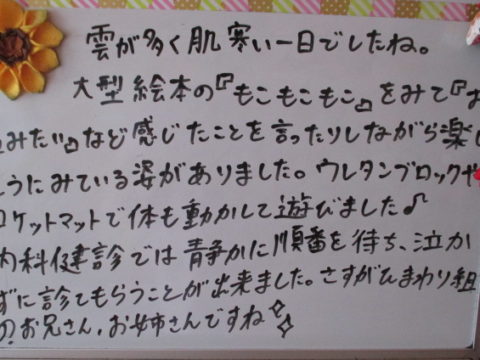 雲が多く肌寒い一日でしたね。
大型絵本の『もこもこもこ』をみて『お
みたい』など感じたことを言ったりしながら楽し
うにみている姿がありました。ウレタンブロックや
ロケットマットで体も動かして遊びました♪
内科健診では静かに順番を待ち、泣か
ずに診てもらうことが出来ました。さすがひまわり組
の、お兄さん、お姉さんですね✧✧